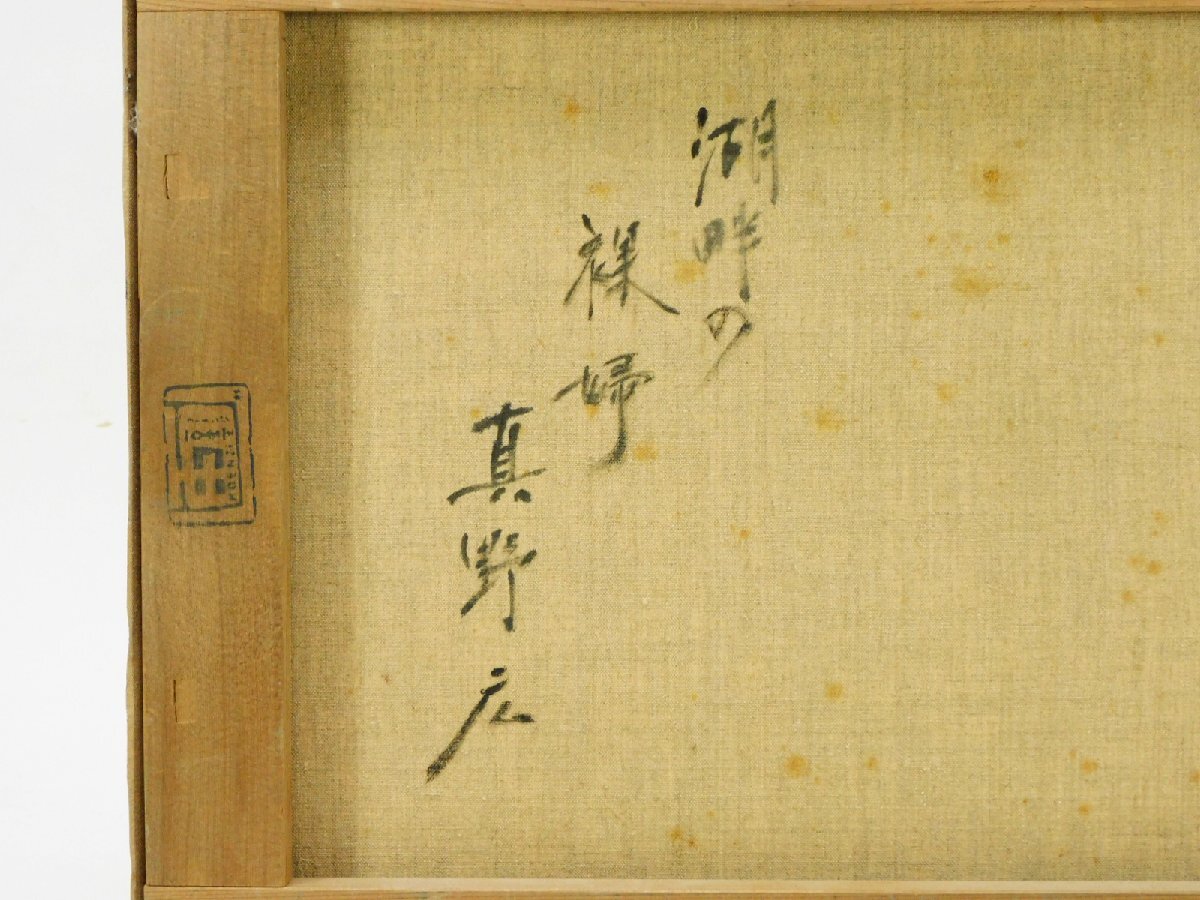 湖畔の
裸婦
真野広